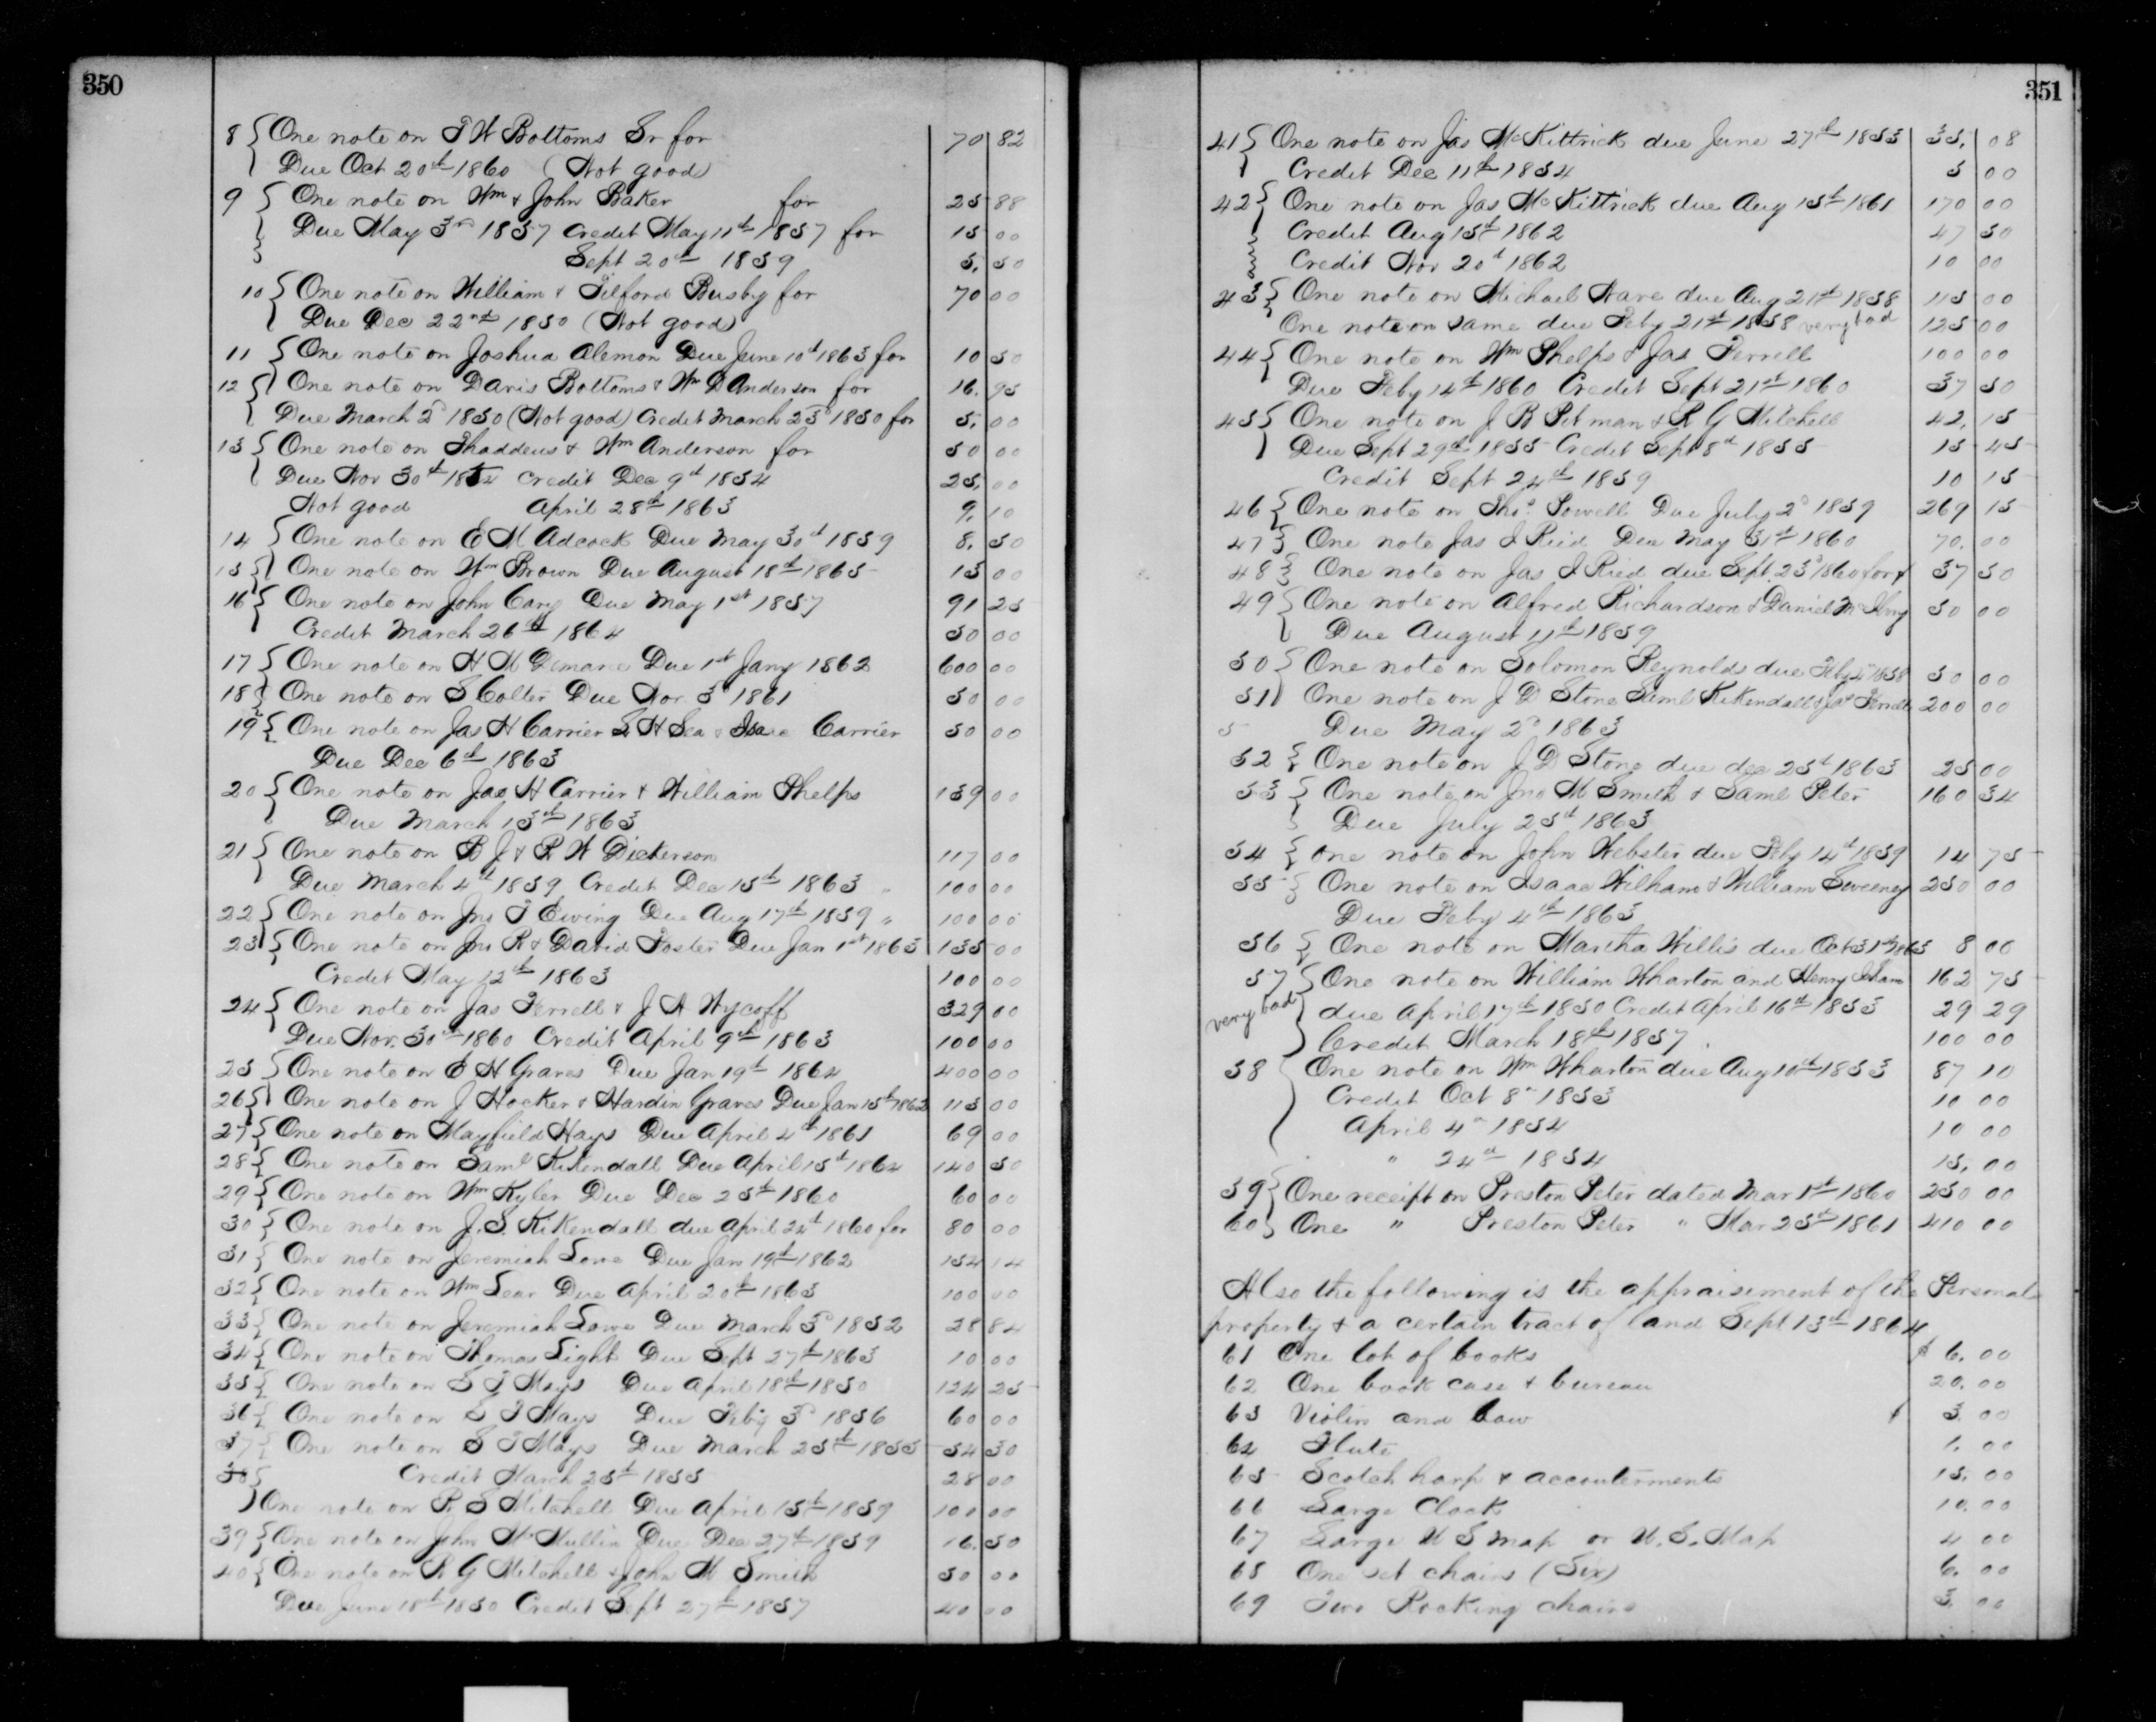 350
8 One note on T W Bottoms Sr for 70 82
Due Oct 20th 1860 (Not good)
9 One note on Wm & John Baker for 25 88
Due May 3rd 1857 Credit May 11th 1857 for 15 00
Sept 20th 1859 5. 50
10 One note on William & Tilford Busby for 70 00
Due Dec 22nd 1850 (Not good)
11 One note on Joshua Alemon Due June 10th 1863 for 10 50
12 One note on Davis Bottoms & Wm D Anderson for 16. 95
Due March 2d 1850 (Not good) Credit March 23d 1850 for 5. 00
13 One note on Thaddeus & Wm Anderson for 50 00
Due Nov 30th 1852 Credit Dec 9th 1854 25. 00
Not good April 28th 1863 9. 10
14 One note on E M Adcock Due May 30th 1859 8. 50
15 One note on Wm Brown Due August 18th 1865 15 00
16 One note on John Cary Due May 1st 1857 91 25
Credit March 26th 1864 50 00
17 One note on H M Demaree Due 1st Jany 1862 600 00
18 One note on S Colter Due Nov 3d 1861 50 00
19 One note on Jas H Carrier S H Sea & Isaac Carrier 50 00
Due Dec 6th 1863
20 One note on Jas H Carrier & William Phelps 159 00
Due March 13th 1863
21 One note on B J & R W Dickerson 117 00
Due March 4th 1859 Credit Dec 15th 1863 " 100 00
22 One note on Jno T Ewing Due Aug 17th 1859 " 100 00
23 One note on Jno R & David Foster Due Jan 1st 1863 135 00
Credit May 12th 1863 100 00
24 One note on Jas Ferrell & J A Wycoff 329 00
Due Nov. 30th 1860 Credit April 9th 1863 100 00
25 One note on E H Graves Due Jan 19th 1864 400 00
26 One note on J Hocker & Hardin Graves Due Jan 15th 1862 115 00
27 One note on Mayfield Hays Due April 4th 1861 69 00
28 One note on Saml Kikendall Due April 15th 1864 140 50
29 One note on Wm Kyler Due Dec 25th 1860 60 00
30 One note on J. S. Kikendall due April 24th 1860 for 80 00
31 One note on Jeremiah Lowe Due Jan 19th 1862 154 14
32 One note on Wm Lear Due April 20th 1863 100 00
33 One note on Jeremiah Lowe Due March 3d 1852 28 84
34 One note on Thomas Light Due Sept 27th 1863 10 00
35 One note on S T Mays Due April 18th 1850 124 25
36 One note on S T Mays Due Feby 3d 1856 60 00
37 One note on S T Mays Due March 25th 1855 54 30
38 Credit March 25th 1855 28 00
One note on R. S Mitchell Due April 15th 1859 100 00
39 One note on John McMullin Due Dec 27th 1859 16. 50
40 One note on R G Mitchell & John M Smith 50 00
Due June 18th 1850 Credit Sept 27th 1857 40 00
351
41 One note on Jas McKittrick due June 27th 1853 35. 08
Credit Dec 11th 1854 5 00
42 One note on Jas McKittrick due Aug 15th 1861 170 00
Credit Aug 15th 1862 47 50
Credit Nov 20th 1862 10 00
43 One note on Michael Nave due Aug 21st 1858 115 00
One note on same due Feby 21st 1858 very bad 125 00
44 One note on Wm Phelps & Jas Ferrell 100 00
Due Feby 14th 1860 Credit Sept 21st 1860 37 50
45 One note on J B Pitman & R G Mitchell 42. 15
Due Sept 29th 1855 Credit Sept 8th 1855 15 45
Credit Sept 24th 1859 10 15
46 One note on Thos. Powell Due July 2d 1859 269 15
47 One note Jas J Ried Due May 31st 1860 70. 00
48 One note on Jas J Ried due Sept. 23d 1860 for 37 50
49 One note on Alfred Richardson & Daniel 50 00
Due August 11th 1859
50 One note on Solomon Reynolds due Feby 4th 1858 50 00
51 One note on J D Stone Saml Kikendall & Jas Ferrell 200 00
5 Due May 2d 1863
52 One note on J D Stone due dec 25th 1863 25 00
53 One note on Jno M Smith & Saml Peter 160 34
Due July 25th 1863
54 One note on John Webster due Feby 14th 1859 14 75
55 One note on Isaac Wilham & William Sweeney 250 00
Due Feby 4th 1863
56 One note on Martha Willis due Oct 31st 1863 8 00
57 One note on William Wharton and Henry Isham 162 75
very bad due April 17th 1850 Credit April 16th 1853 29 29
Credit March 18th 1857. 100 00
58 One note on Wm Wharton due Aug 10th 1853 87 10
Credit Oct 8th 1853 10 00
April 4th 1854 10 00
" 24th 1854 15. 00
59 One receipt on Preston Peter dated Mar 1st 1860 250 00
60 One " Preston Peter " Mar 25th 1861 410 00
Also the following is the appraisement of the Personal
property & a certain tract of land Sept 13th 1864
61 One lot of books $ 6. 00
62 One book case & bureau 20. 00
63 Violin and bow $ 3. 00
64 Flute 1. 00
65 Scotch harp & accouterments 15. 00
66 Large Clock 10. 00
67 Large U S map or U. S. Map 4 00
68 One set chairs (Six) 6. 00
69 Two Rocking chairs 3. 00